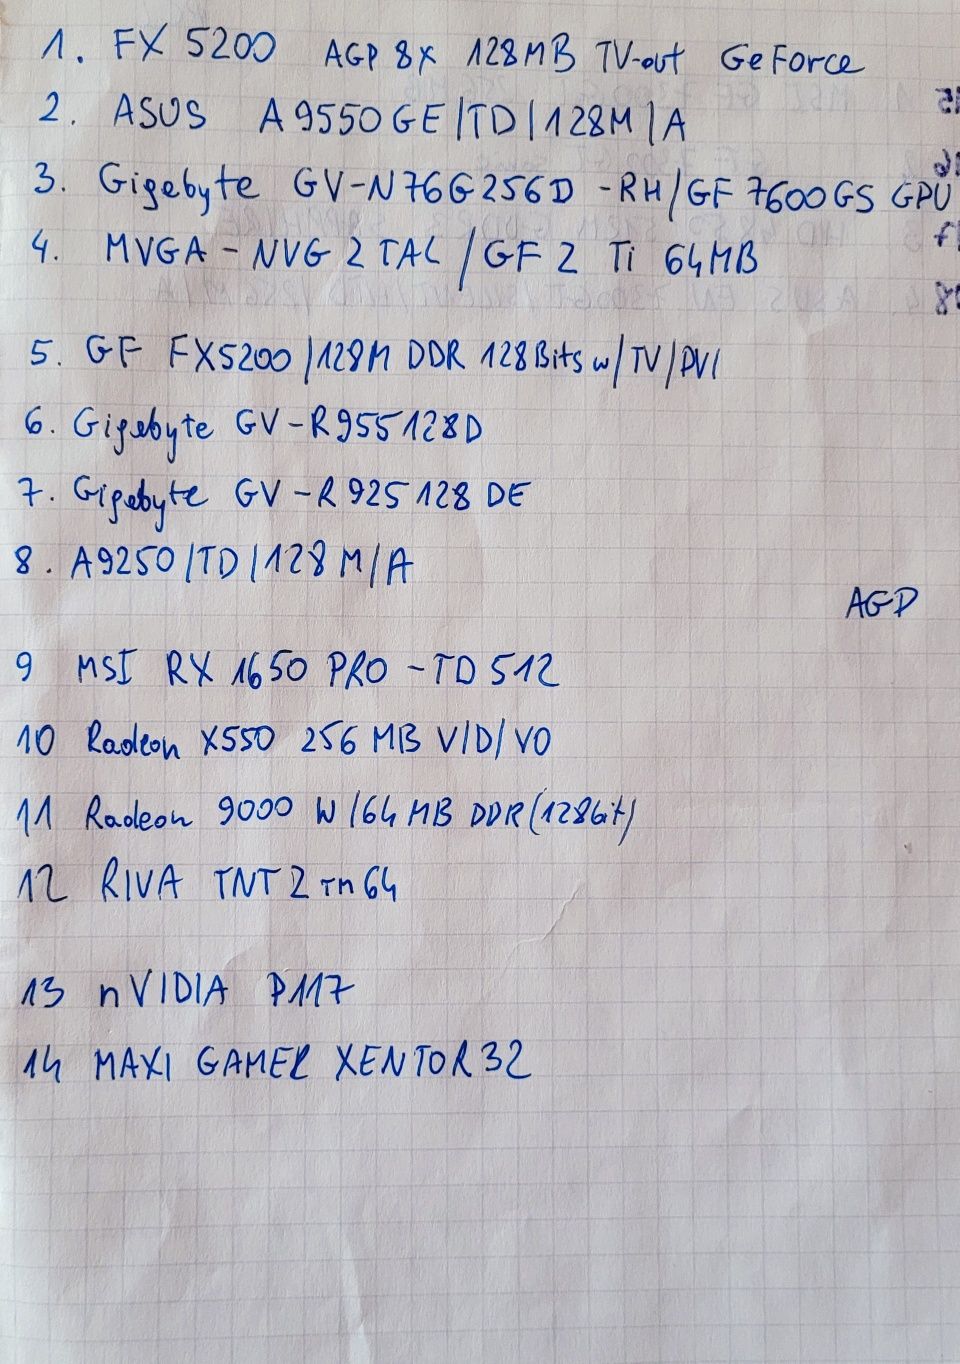 1. FX 5200 AGP 8x 128MB TV-out GeForce
2. ASUS A9550GE/TD/128M/A
3. Gigebyte GV-N76G256D -RH/GF 7600GS GPU
4. MVGA-NVG2TAL/GF2 Ti 64MB
5. GF FX5200/128M DDR 128Bits w/TV/DVI
6. Gigebyte GV-R955128D
7. Gigebyte GV-R925128DE
8. A9250/TD/128M/A
AGP
9 MSI RX 1650 PRO-TD512
10 Radeon X550 256 MB V/D/VO
11 Radeon 9000 W/64MB DDR(128bit)
12 RIVA TNT2 TM64
13 nVIDIA P117
14 MAXI GAMER XENTOR32